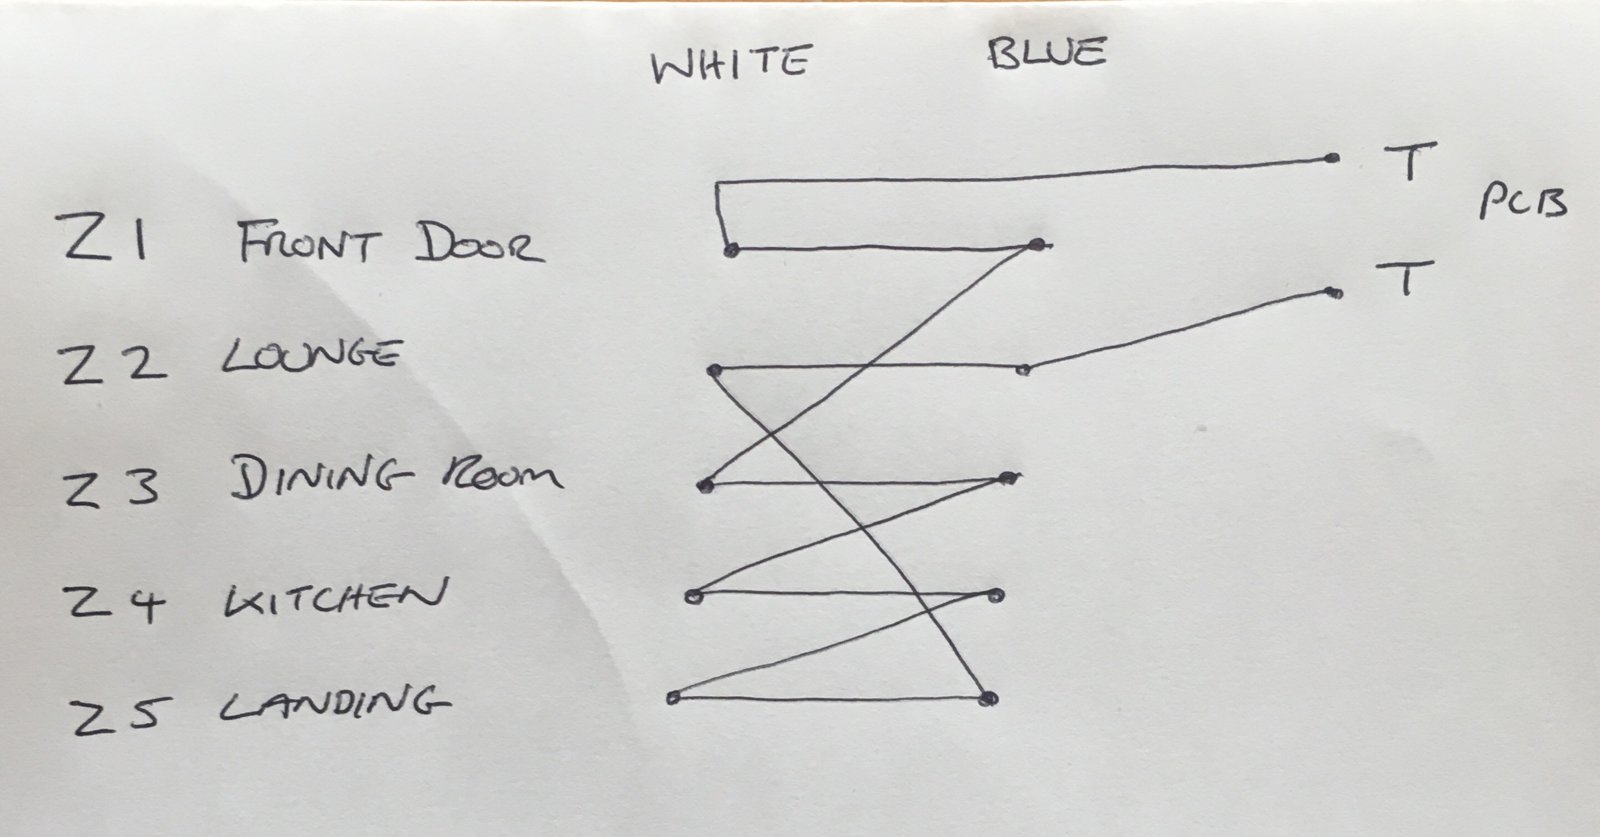 WHITE BLUE
T
PCB
Z1 FRONT DOOR
T
Z2 LOUNGE
Z3 DINING ROOM
Z4 KITCHEN
Z5 LANDING